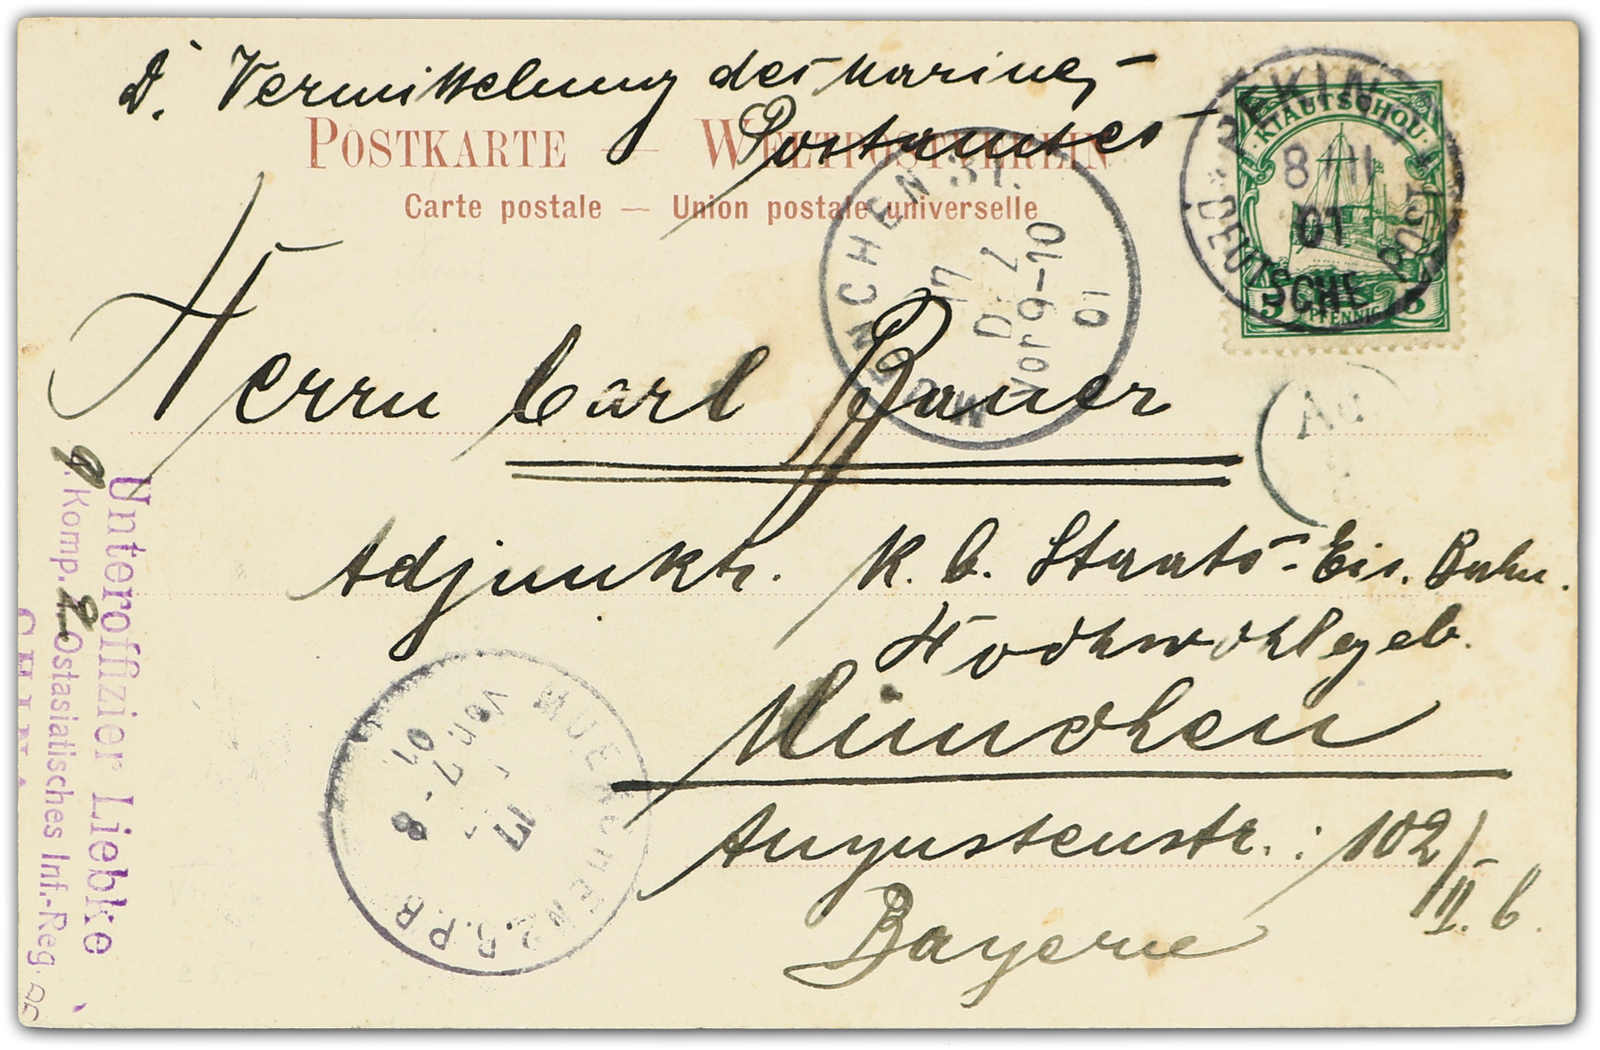 D. Vermittelung des Marine-
Postamtes
POSTKARTE — WELTPOSTVEREIN
Carte postale — Union postale universelle
PEKING
DEUTSCHE POST
8 III
01
KIAUTSCHOU
5 PFENNIG 5
MUENCHEN 31.
17
D. 7
Vor 9-10
01
Herrn Carl Bauer
Adjunkt. K. b. Staats-Eis. Bahn.
Hochwohlgeb.
München
Augustenstr.: 102/
II. b.
Bayern
MUENCHEN 2. B.P.B
17
7
Vor 7-8
01
Unteroffizier Liebke
9. Komp. 2. Ostasiatisches Inf.-Reg.
CHINA